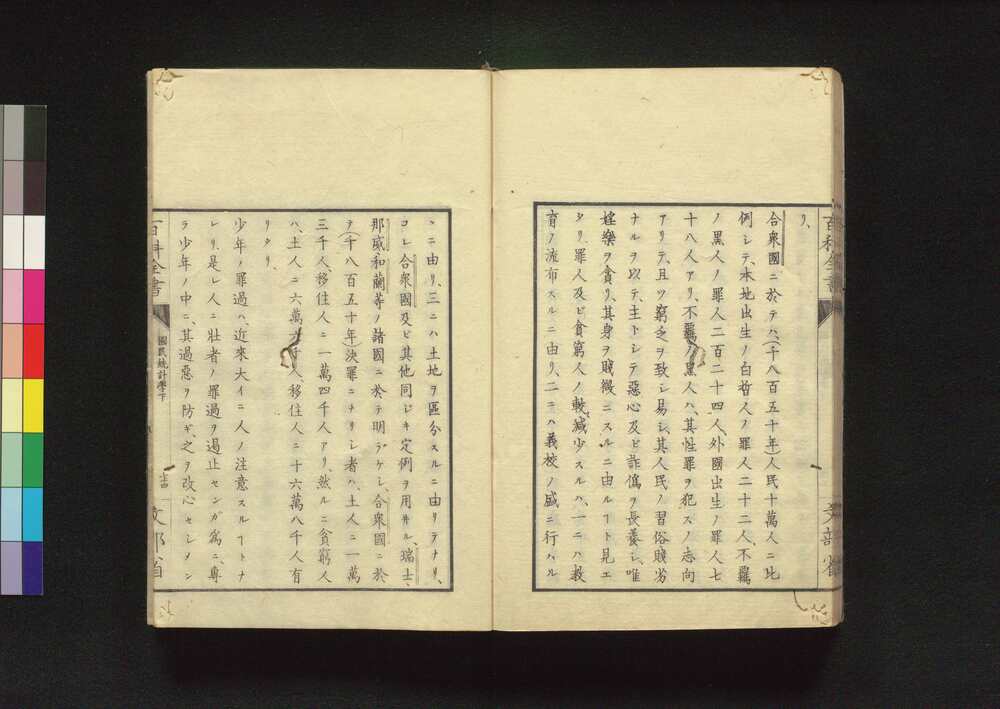 リ、
合衆國ニ於テハ、(千八百五十年)人民十萬人ニ比
例シテ、本地出生ノ白晳人ノ罪人二十二人、不羈
ノ黒人ノ罪人二百二十四人、外國出生ノ罪人七
十八人アリ、不羈ノ黒人ハ、其性罪ヲ犯スノ志向
アリテ、且ツ窮乏ヲ致シ易シ、其人民ノ習俗賤劣
ナルヲ以テ、主トシテ惡心及ビ詐僞ヲ長養シ、唯
婬樂ヲ貪リ、其身ヲ賤微ニスルニ由ルヿト見エ
タリ、罪人及ビ貪窮人ノ較減少スルハ、一ニハ教
育ノ流布スルニ由リ、二ニハ義校ノ盛ニ行ハル
ヽニ由リ、三ニハ土地ヲ區分スルニ由リテナリ、
コレ合衆國及ビ其他同ジキ定例ヲ用井ル、瑞士、
那威和蘭等ノ諸國ニ於テ明ラケシ、合衆國ニ於
テ(千八百五十年)決罪ニナリシ者ハ、土人ニ一萬
三千人、移住人ニ一萬四千人アリ、然ルニ貪窮人
ハ、土人ニ六萬六千人、移住人ニ十六萬八千人有
リタリ、
少年ノ罪過ハ、近來大イニ人ノ注意スルヿトナ
レリ、是レ人ニ壯者ノ罪過ヲ遏止センガ爲ニ、專
ラ少年ノ中ニ、其過惡ヲ防ギ、之ヲ改心セシメン
百科全書
國民統計學下
十四
文部省
百科全書
文部省